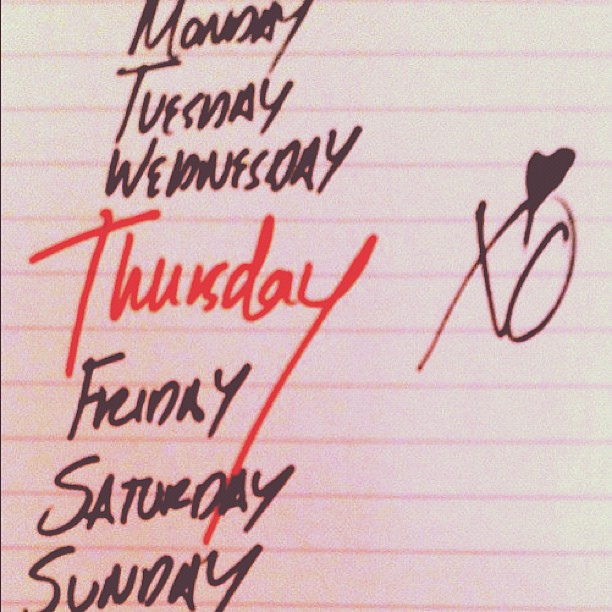 Monday
Tuesday
Wednesday
Thursday
XO
Friday
Saturday
Sunday